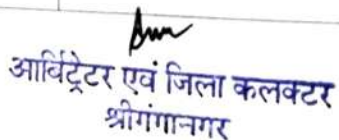 आर्विट्रेटर एवं जिला कलक्टर
श्रीगंगानगर